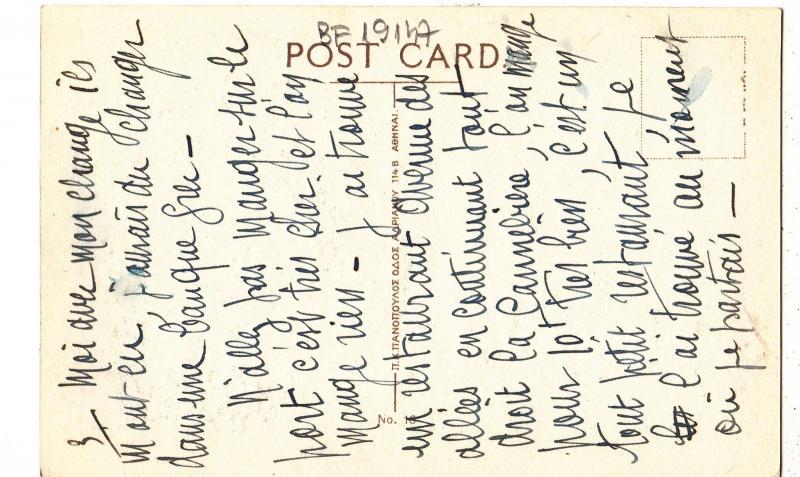 BE 19147
POST CARD
Π.Κ ΠΑΝΟΠΟΥΛΟΣ ΟΔΟΣ ΑΔΡΙΑΝΟΥ 114 Β ΑΘΗΝΑΙ.
No. 16
3
Moi avec mon change ils
m'ont eu, j'aurais du changer
dans une banque Grec —
N'allez pas manger sur le
port c'est très cher, et l'on
mange rien — J'ai trouvé
un restaurant avenue des
allées en continuant tout
droit la Cannebière, l'on mange
pour 10f très bien, c'est un
tout petit restaurant je
l'ai trouvé au moment
où je partais —